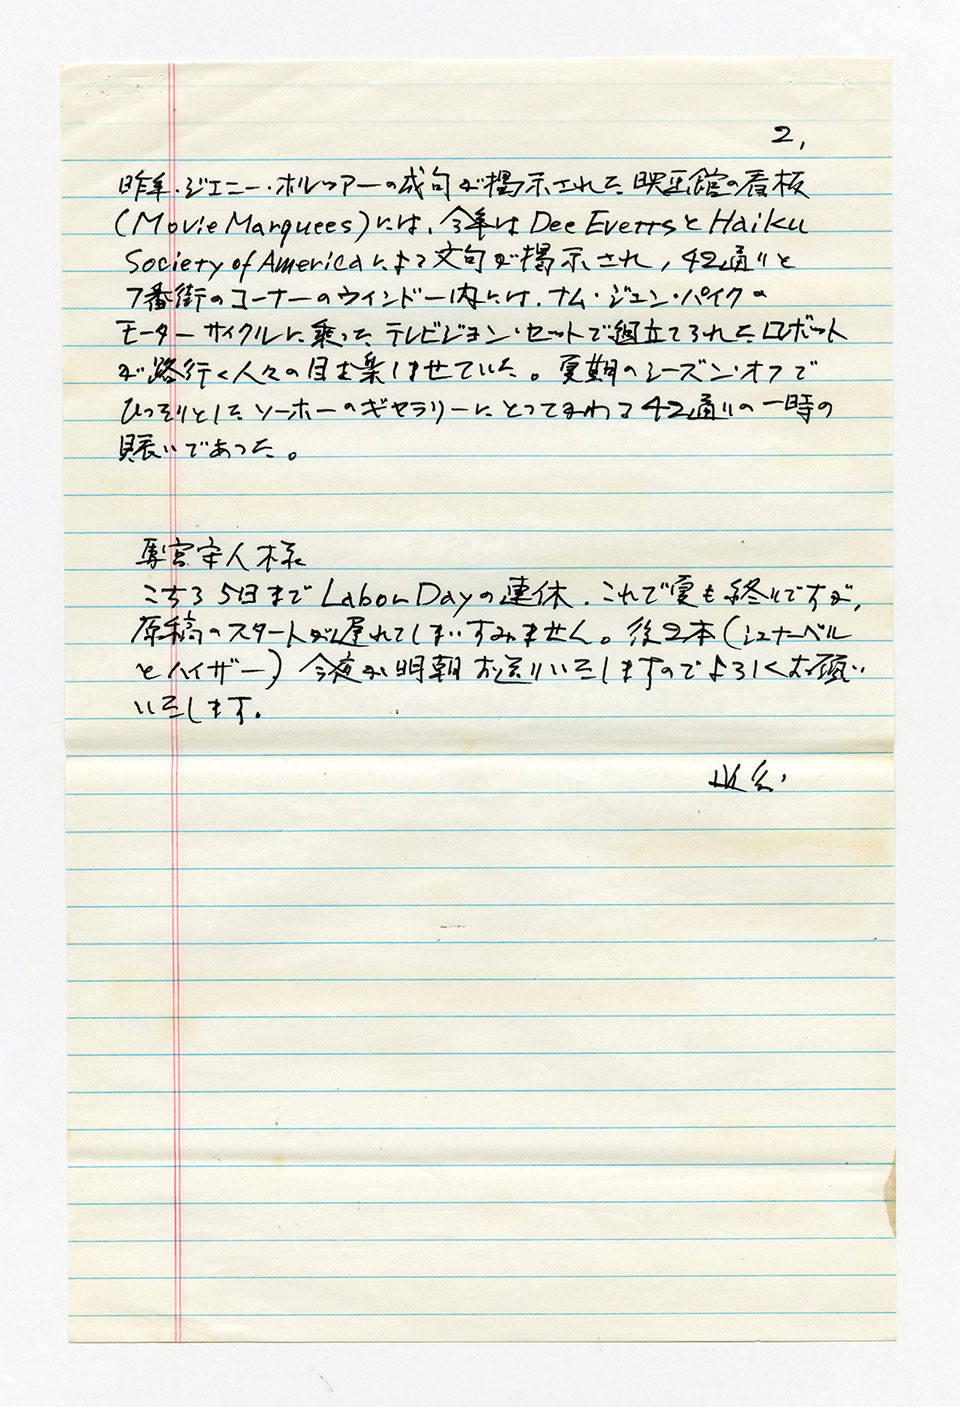 2,
昨年・ジェニー・ホルツァーの成句が掲示された映画館の看板
(Movie Marquees)には、今年は Dee EvettsとHaiku
Society of Americaによって文句が掲示され, 42通りと
7番街のコーナーのウインドー内には、ナム・ジュン・パイクの
モーターサイクルに乗ったテレビジョン・セットで組立てられたロボット
が路行く人々の目を集ませていた。夏期のシーズン・オフで
ひっそりとしたソーホーのギャラリーにとってかわる42通りの一時の
賑いであった。
馬宮守人様
こちら5日までLabor Dayの連休. これで夏も終りですが,
原稿のスタートが遅れてしまいすみません。後2本(シュナーベル
とハイザー)今夜か明朝お送りいたしますのでよろしくお願い
いたします.